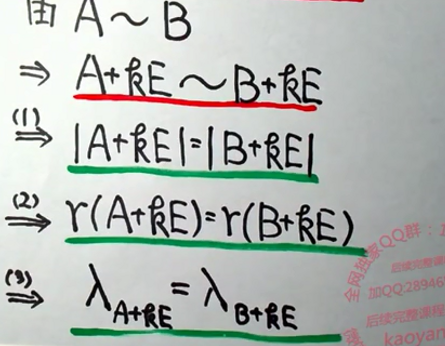 由 A∼B
⇒ A+kE∼B+kE
(1)⇒ |A+kE|=|B+kE|
(2)⇒ r(A+kE)=r(B+kE)
(3)⇒ λ_{A+kE}=λ_{B+kE}
全网独家QQ群：
后续完整课
加QQ:28946
后续完整课程
kaoyan